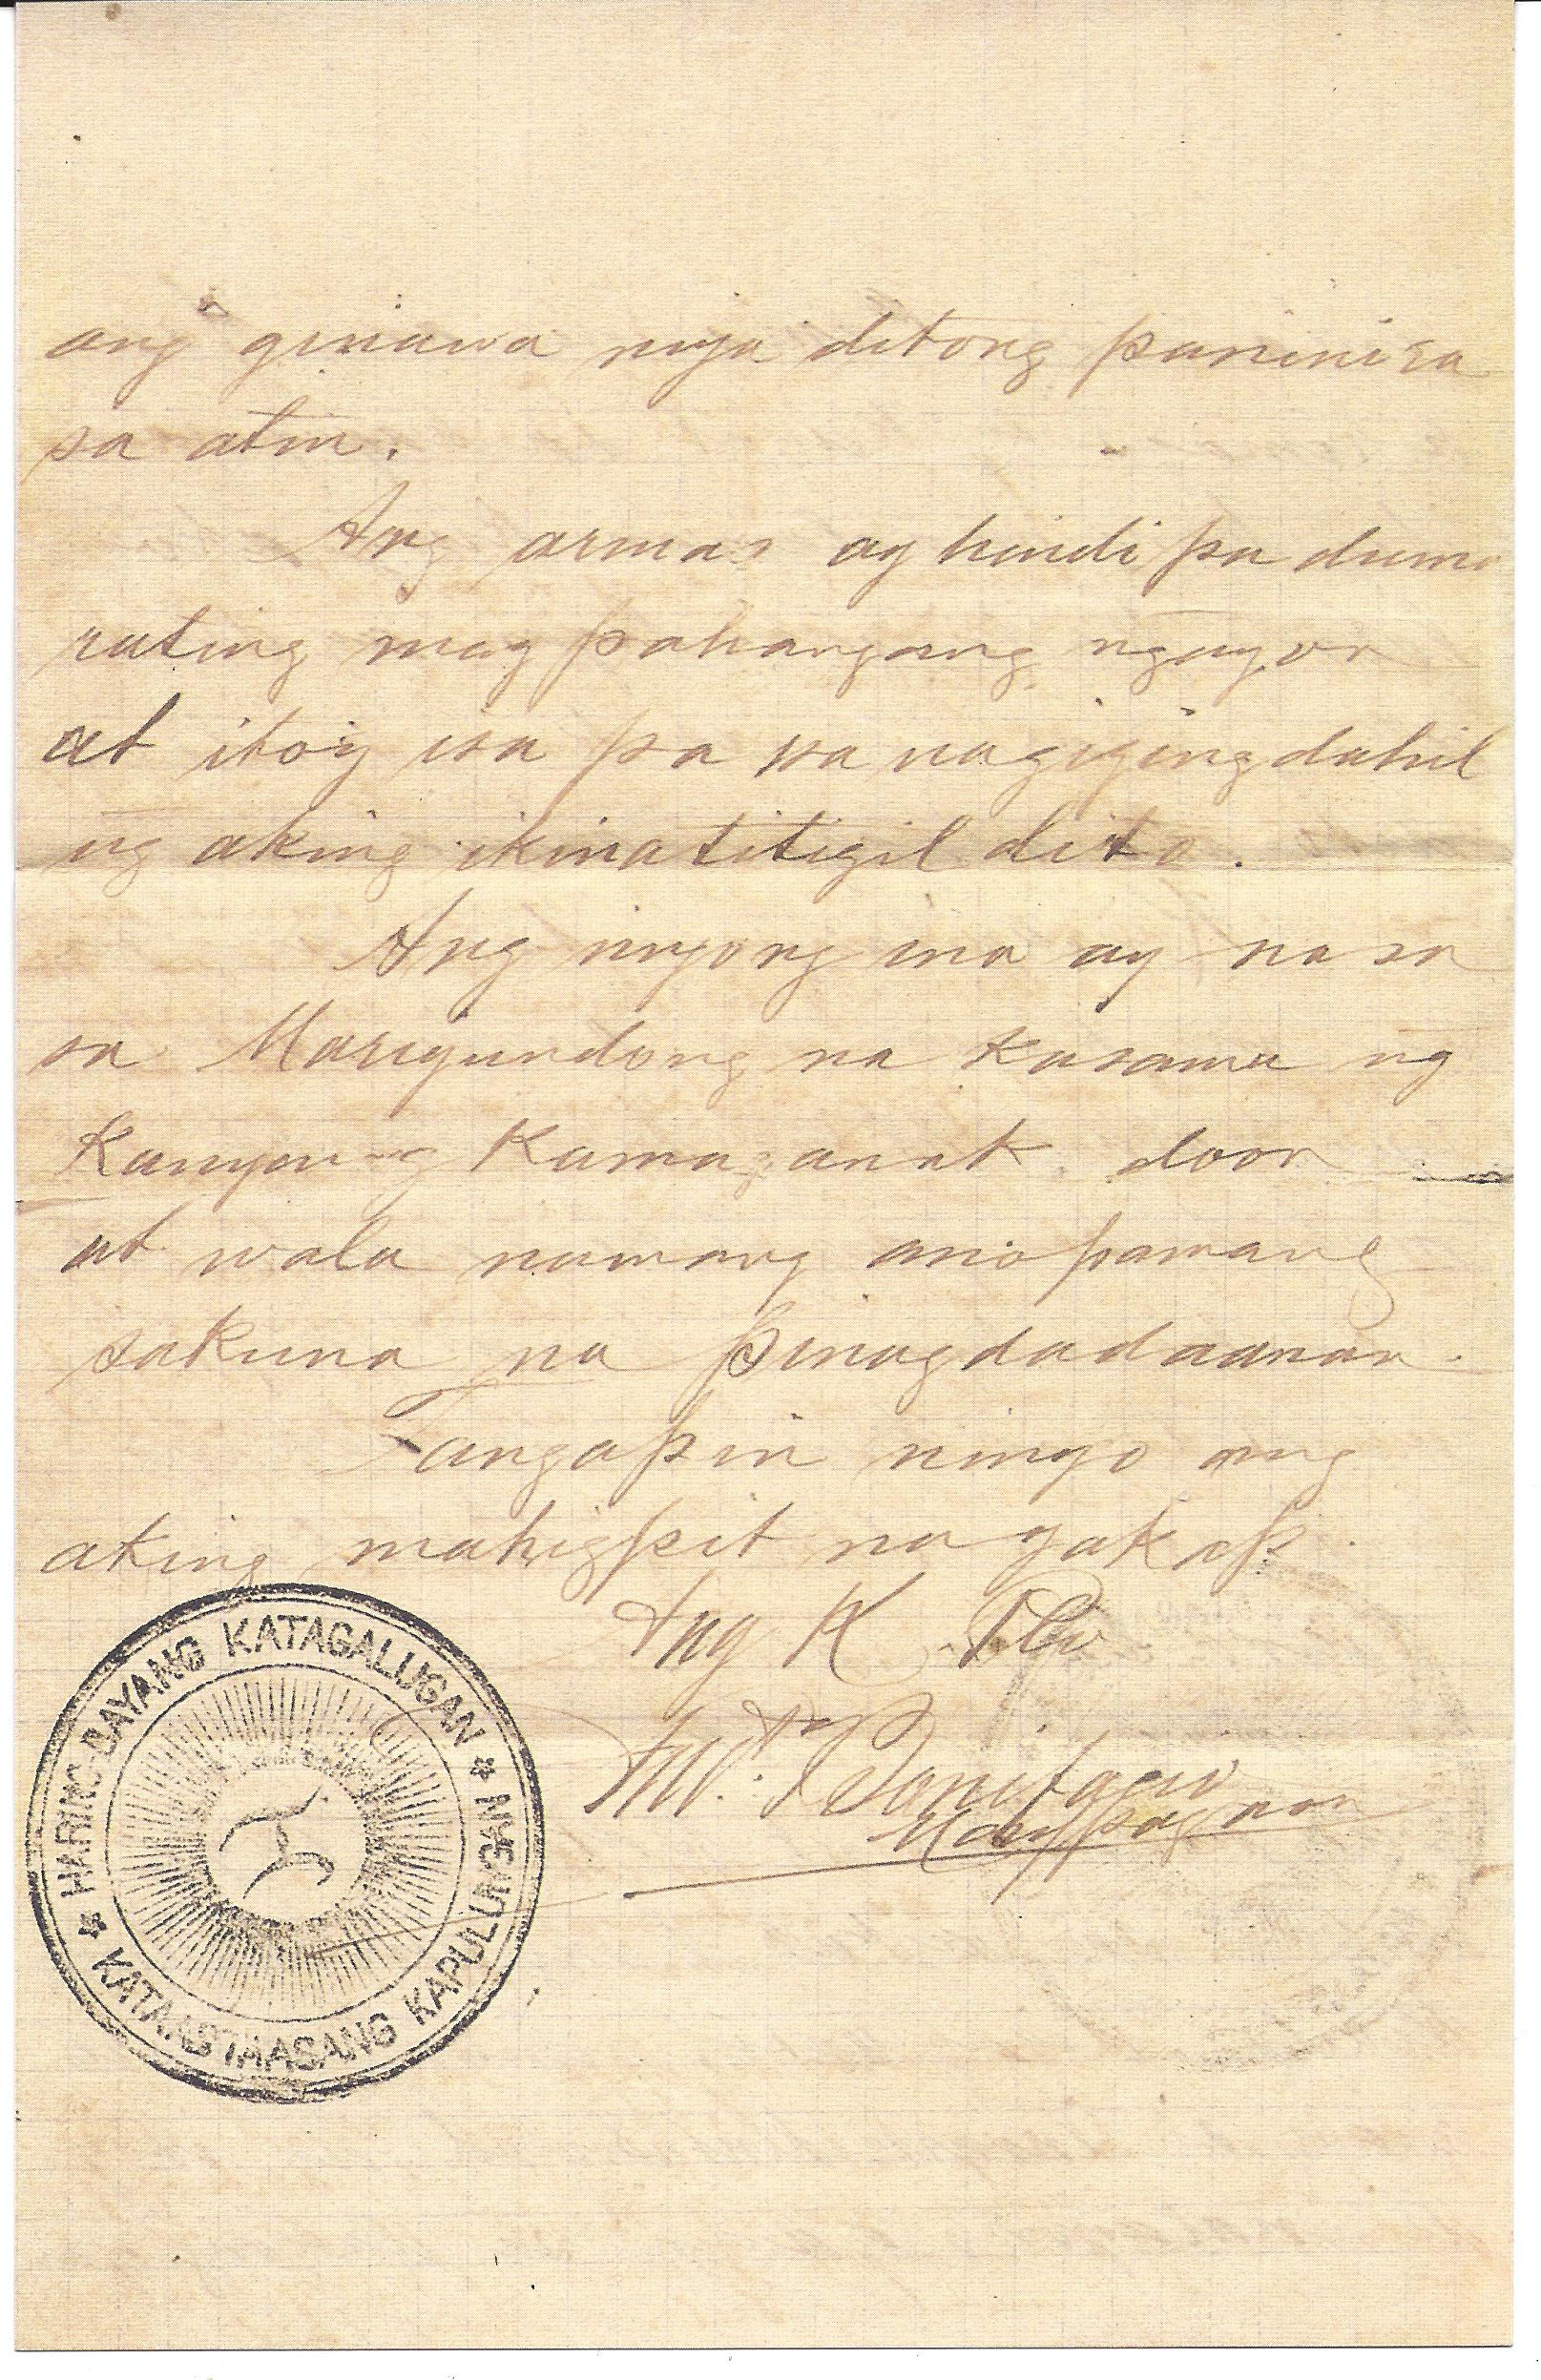 ang ginawa niya ditong paninira
sa atin.
Ang armas ay hindi pa duma
rating mag pahangang ngayon
at ito'y isa pa sa nagiging dahil
ng aking ikinatitigil dito.
Ang inyong ina ay na sa
sa Marigundong na kasama ng
kanyang kamaganak doon
at wala namang anopamang
sakuna na pinagdadaanan.
Tangapin ninyo ang
aking mahigpit na yakap.
Ang K Plo
And. Bonifacio
Maypagasa
HARING BAYANG KATAGALUGAN
KATAASTAASANG KAPULUNGAN